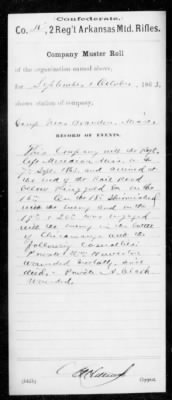 Confederate.
Co. K, 2 Reg't Arkansas Mtd. Rifles.
Company Muster Roll
of the organization named above,
for September & October, 1863,
shows station of company,
Camp near Brandon, Miss.
RECORD OF EVENTS.
This Company with the Regt.
left Meridian Miss. on the
7th Sept. 1863, and arrived at
the end of the Rail Road
below Ringgold Ga. on the
the 18th skirmished
with the enemy and on the
19th & 20th was engaged
with the enemy in the battle
of Chicamauga and the
following casualties:
Private Wm
wounded mortally, since
died. Private A. Clark
wounded.
Copyist.